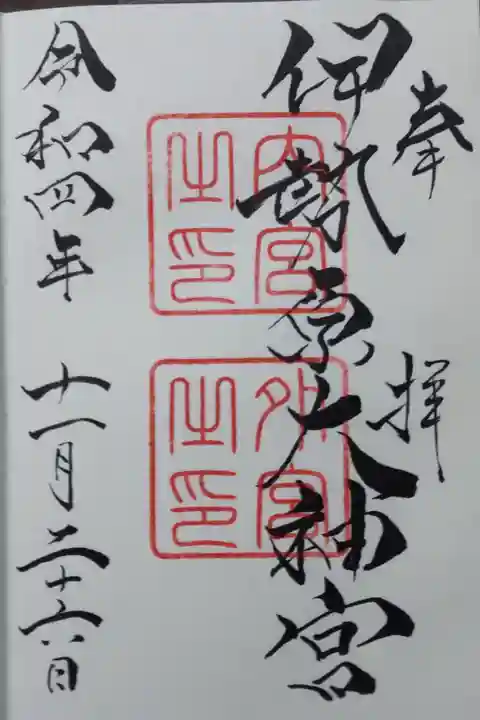 奉拝
伊勢原大神宮
内宮之印
外宮之印
令和四年 十一月二十六日